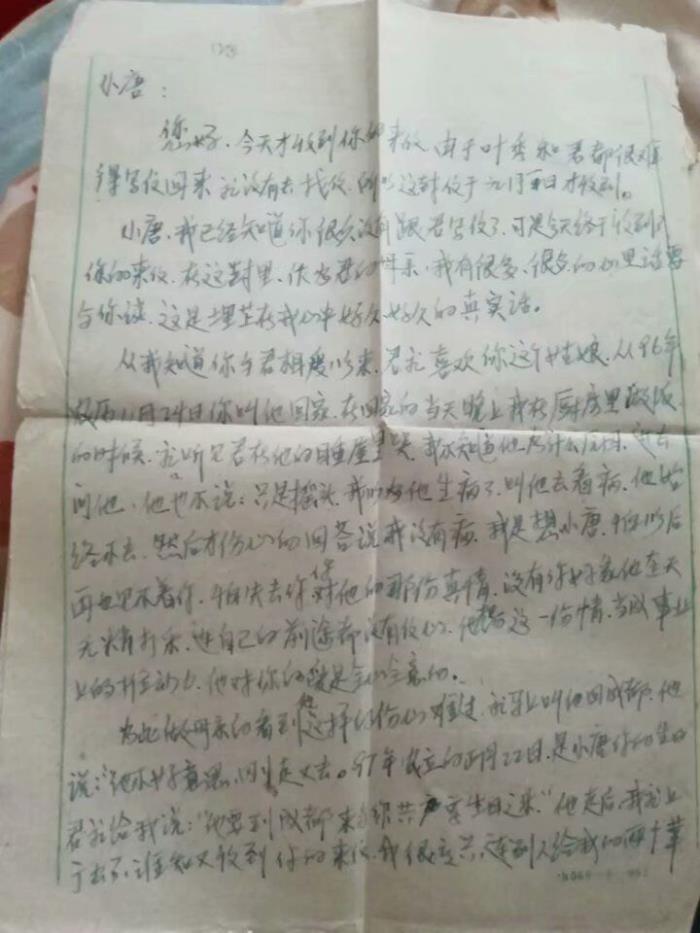 小唐：
您好，今天才收到你的来信，由于叶秀和君都很难
得写信回来，我没有去找信，所以这封信于元月 日才收到。
小唐，我已经知道你很久没有跟君写信了，可是今天终于收到了
你的来信，在这封里，我有很多、很多的心里话要
与你谈，这是埋在我心中好久好久的真实话。
从我知道你与君相处以来，君就喜欢你这个姑娘，从96年
农历11月24日你叫他回家，在回家的当天晚上我在厨房里做饭
的时候，就听见君在他的睡屋里哭，我不知道他为什么原因，进去
问他，他也不说：只是摇头，我以为他生病了，叫他去看病，他始
终不去，然后才伤心的回答说我没有病，我是想小唐，怕以后
再也见不着你，怕失去你对他的那份真情，没有你好象他在天
无精打采，连自己的前途都没有信心，他把这一份情，当成事业
上的推动力，他对你的爱是全心全意的。
为此做母亲的看到他这样的伤心难过，就马上叫他回成都，他
说：“他不好意思，回来走又去。97年成立的正月22日，是小唐你的生日
君就给我说：“他要到成都来与你共度生日之乐”他走后，我就上
广去了，谁知又收到你的来信，我很高兴，连别人给我的两个苹